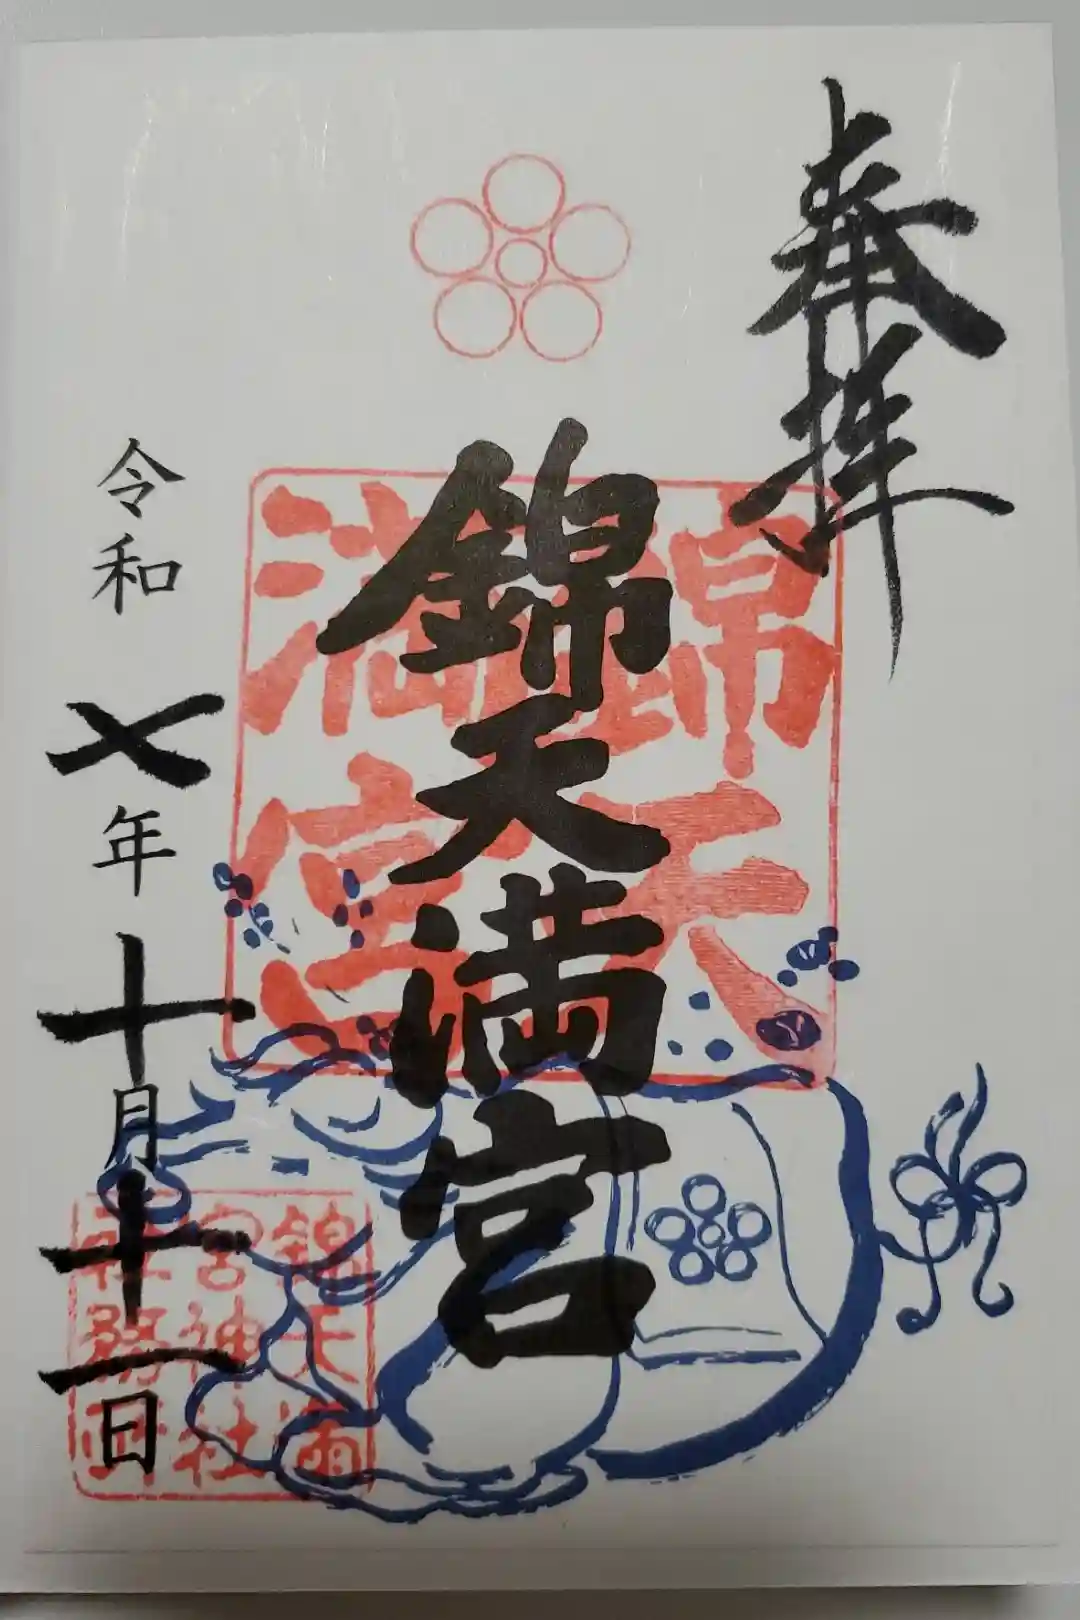 奉拝
錦天満宮
錦天
満宮
令和七年十月十一日
錦天満
宮神社
社務所